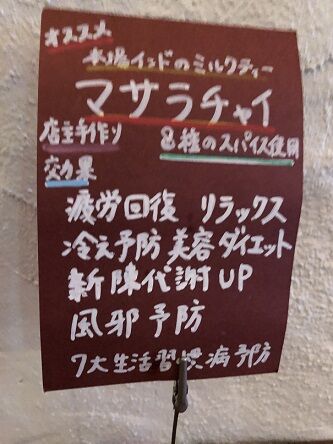 オススメ
本場インドのミルクティー
マサラチャイ
店主手作り
8種のスパイス使用
効果
疲労回復 リラックス
冷え予防 美容 ダイエット
新陳代謝UP
風邪予防
7大生活習慣病予防